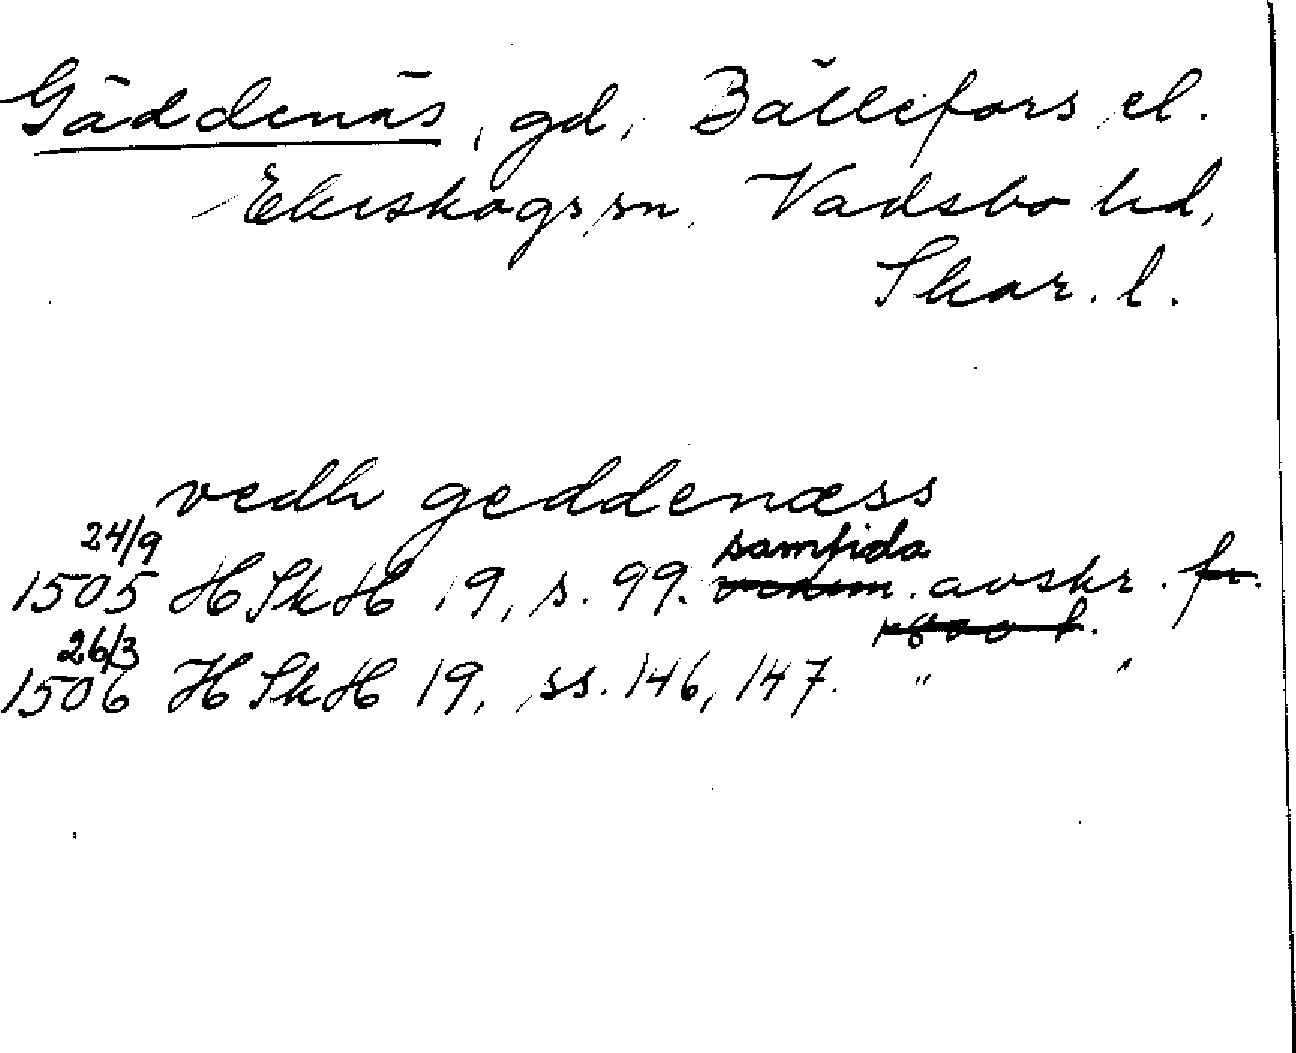 Gäddenäs, gd, Bällefors el.
Ekeskogs sn, Vadsbo hd,
Skar. l.
vedh geddenæss
24/9
samtida
1505 HSkH 19, s. 99. avskr. fr.
1800 t.
26/3
1506 HSkH 19, ss. 146, 147. " "